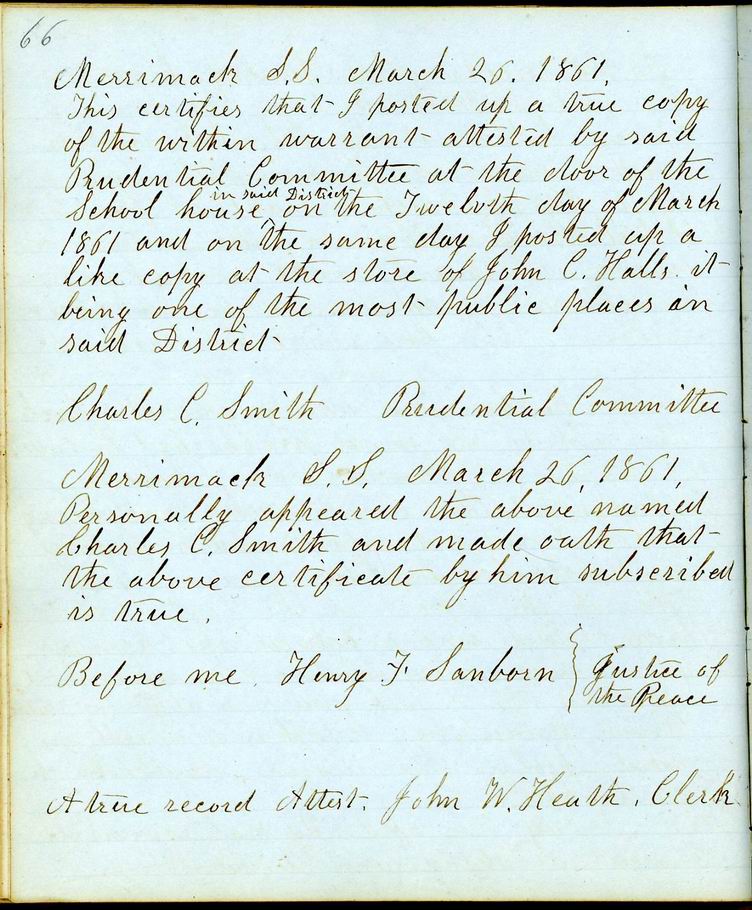 66
Merrimack S.S. March 26. 1861.
This certifies that I posted up a true copy
of the within warrant attested by said
Prudential Committee at the door of the
in said District
School house ^ on the Twelvth day of March
1861 and on the same day I posted up a
like copy at the store of John C. Halls it
being one of the most public places in
said District
Charles C. Smith Prudential Committee
Merrimack S.S. March 26, 1861,
Personally appeared the above named
Charles C. Smith and made oath that
the above certificate by him subscribed
is true.
Before me. Henry F. Sanborn } Justice of
the Peace
A true record Attest. John W. Heath, Clerk